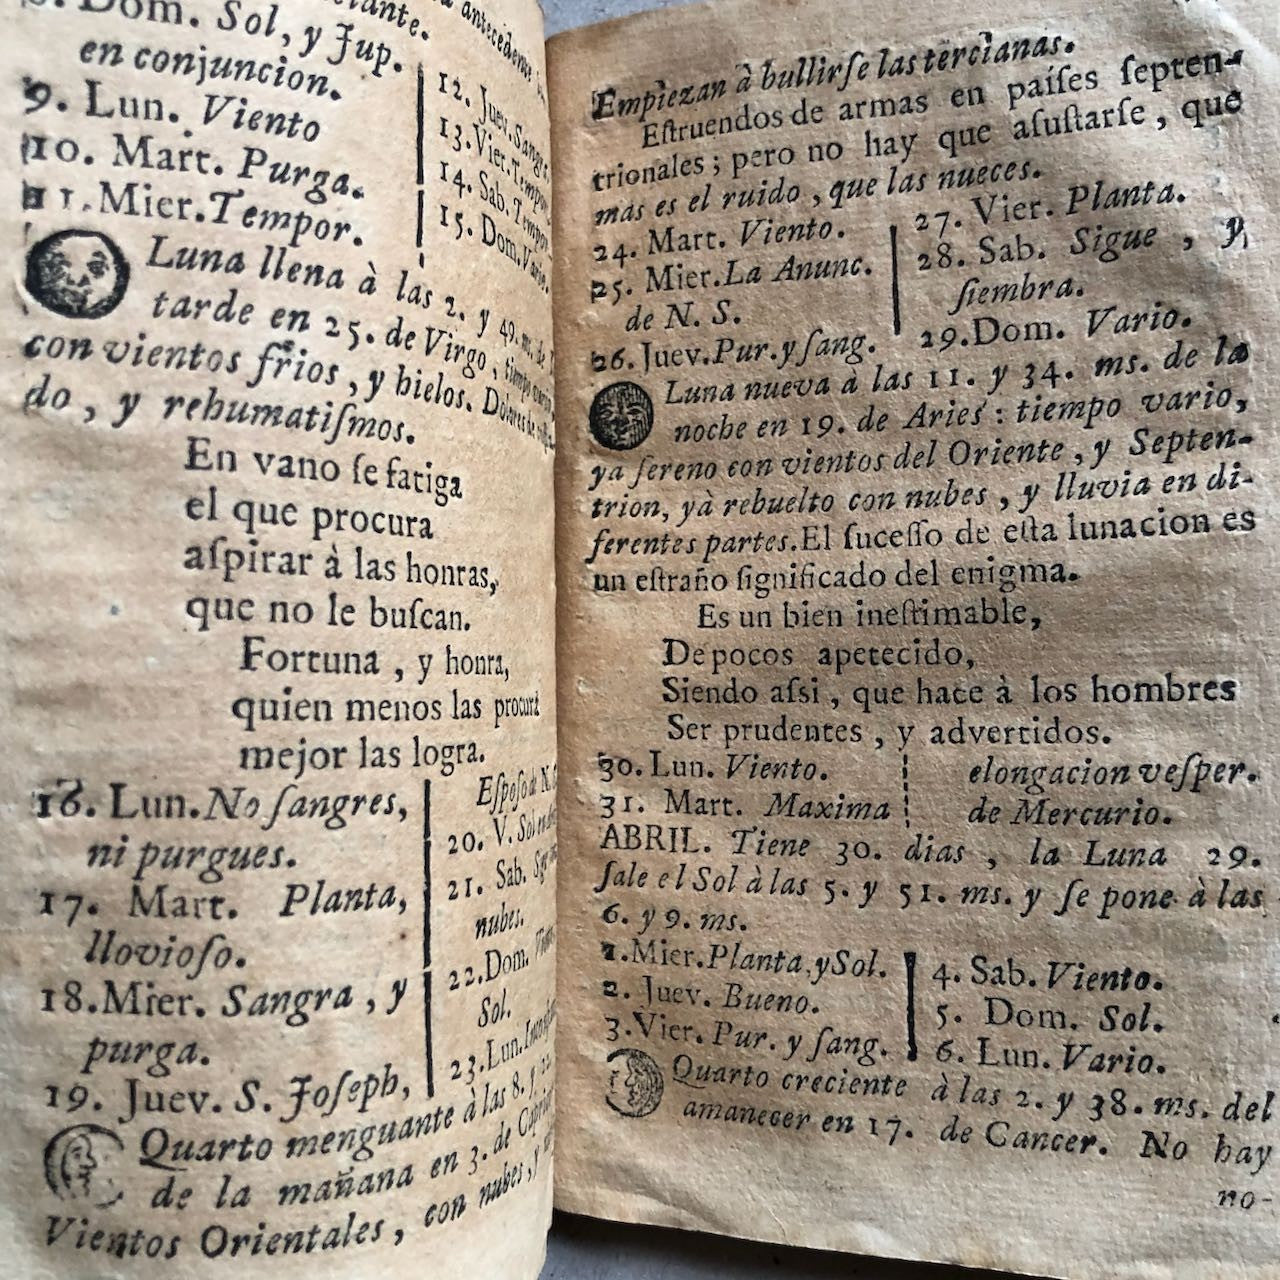 antecedente
8. Dom. Sol, y Jup.
en conjuncion.
9. Lun. Viento
10. Mart. Purga.
11. Mier. Tempor.
12. Juev. Sangre,
13. Vier. Tempor.
14. Sab. Tempor.
15. Dom. Vario.
Luna llena à las 2. y 49. m. de
tarde en 25. de Virgo, tiempo
con vientos frios, y hielos. Dolores de
do, y rehumatiſmos.
En vano ſe fatiga
el que procura
aſpirar à las honras,
que no le buſcan.
Fortuna, y honra,
quien menos las procura
mejor las logra.
16. Lun. No ſangres,
ni purgues.
17. Mart. Planta,
llovioſo.
18. Mier. Sangra, y
purga.
19. Juev. S. Joſeph,
Eſpoſo de N.
20. V. Sol en
21. Sab. Sigue
nubes.
22. Dom.
Sol.
23. Lun.
Quarto menguante à las 8. y 22.
de la mañana en 3. de Capric
Vientos Orientales, con nubes, y
Empiezan à bullirſe las tercianas.
Eſtruendos de armas en paíſes ſepten-
trionales; pero no hay que aſuſtarſe, que
mas es el ruido, que las nueces.
24. Mart. Viento.
25. Mier. La Anunc.
de N. S.
26. Juev. Pur. y ſang.
27. Vier. Planta.
28. Sab. Sigue, y
ſiembra.
29. Dom. Vario.
Luna nueva à las 11. y 34. ms. de la
noche en 19. de Aries: tiempo vario,
ya ſereno con vientos del Oriente, y Septen-
trion, yà rebuelto con nubes, y lluvia en di-
ferentes partes. El ſuceſſo de eſta lunacion es
un eſtraño ſignificado del enigma.
Es un bien ineſtimable,
De pocos apetecido,
Siendo aſsi, que hace à los hombres
Ser prudentes, y advertidos.
30. Lun. Viento.
31. Mart. Maxima
elongacion veſper.
de Mercurio.
ABRIL. Tiene 30. dias, la Luna 29.
ſale el Sol à las 5. y 51. ms. y ſe pone à las
6. y 9. ms.
1. Mier. Planta, y Sol.
2. Juev. Bueno.
3. Vier. Pur. y ſang.
4. Sab. Viento.
5. Dom. Sol.
6. Lun. Vario.
Quarto creciente à las 2. y 38. ms. del
amanecer en 17. de Cancer. No hay
no-